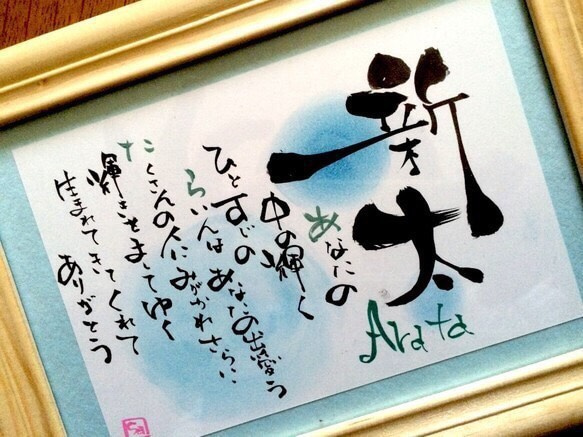 新太
Arata
あなたの
中の輝く
ひとすじの
らいんは あなたの出愛う
たくさんの人に みがかれさらに
輝きをましてゆく
生まれてきてくれて
ありがとう